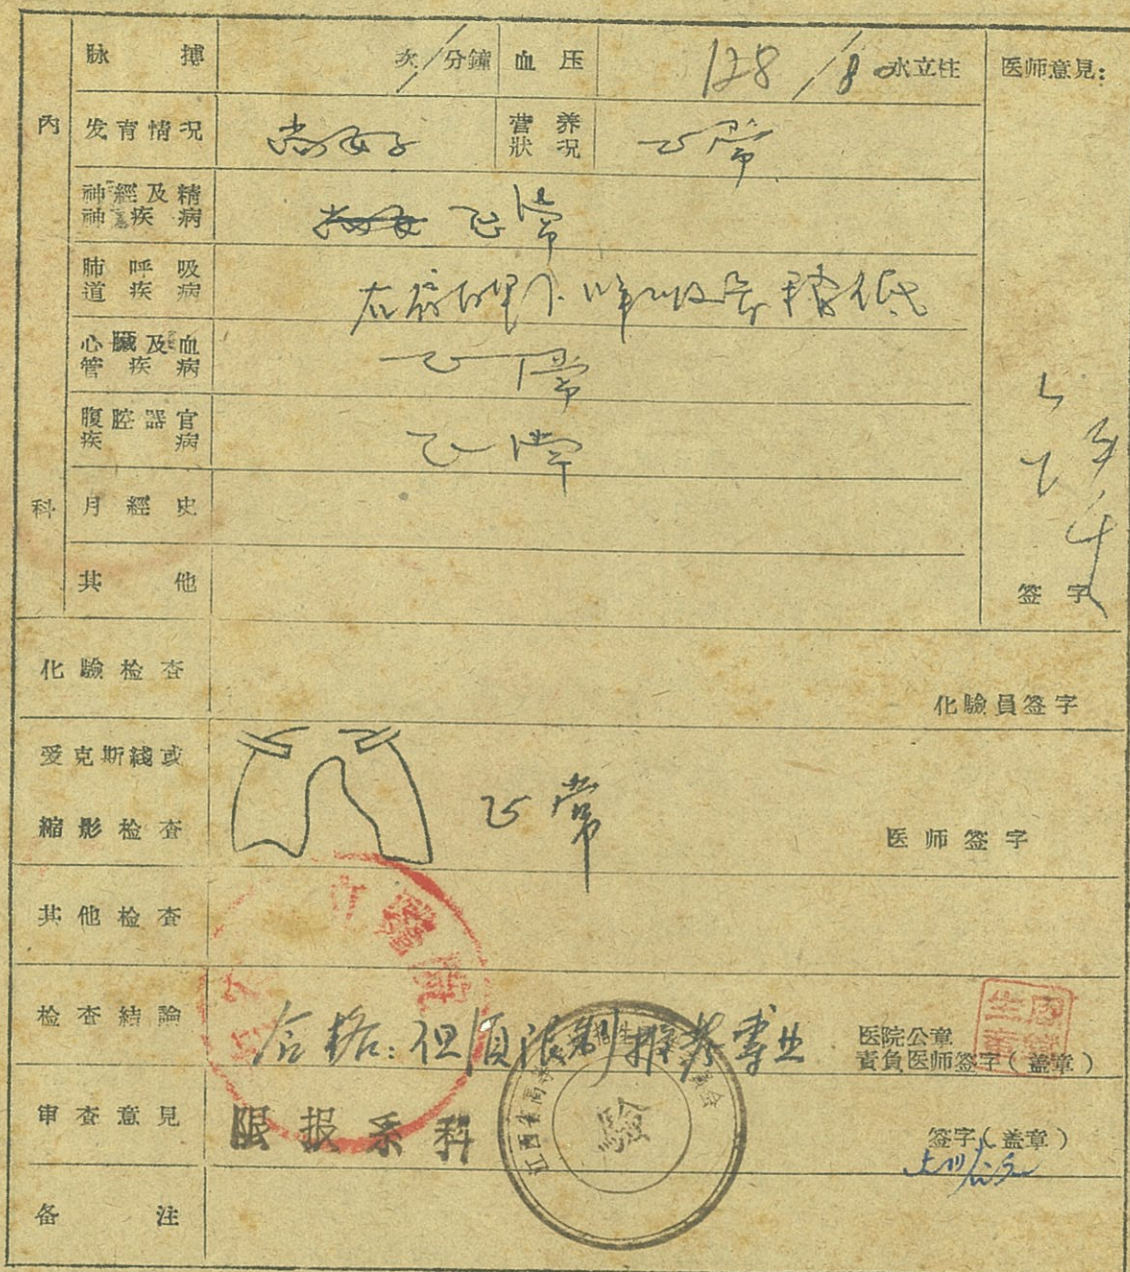 脉搏 次/分鐘 血压 128/80 水立柱 医师意見：
内
发育情况 尚好 营养狀况 正常
神經及精神疾病 正常
肺呼吸道疾病 稍低
心臟及血管疾病 正常
腹腔器官疾病 正常
科
月經史
其他
签字
化驗检查
化驗員签字
爱克斯綫或
縮影检查 正常 医师签字
其他检查
检查結論 合格：但須限制报考专业 医院公章
責負医师签字（盖章）
审查意見 限报系科 签字（盖章）
备注
驗